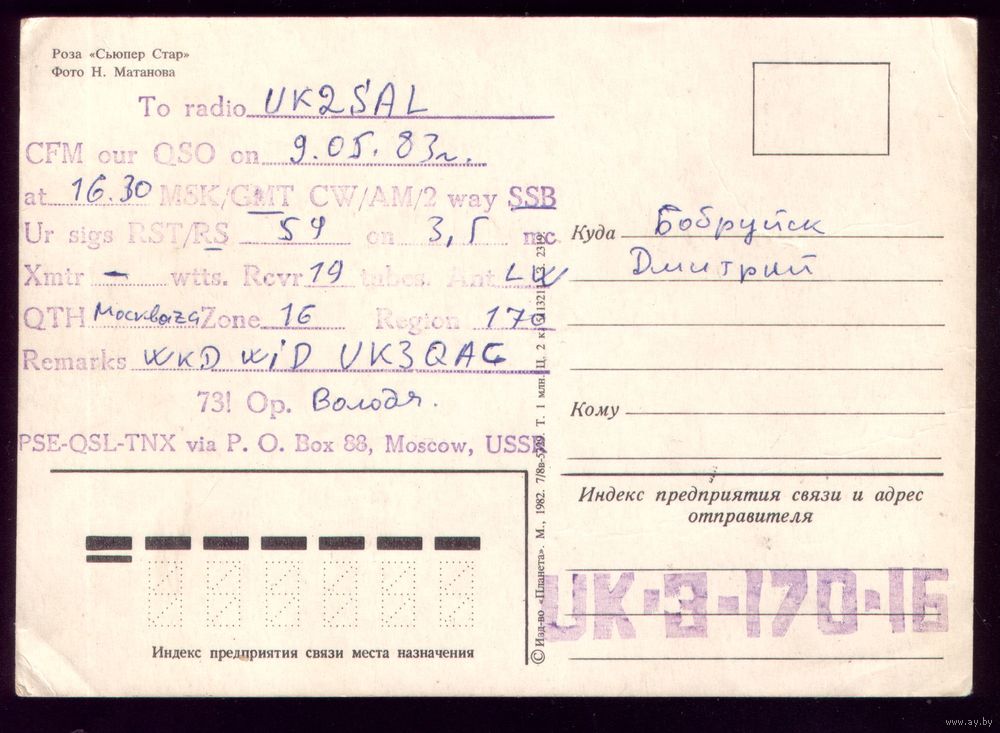 Роза «Сьюпер Стар»
Фото Н. Матанова
To radio UK2SAL
CFM our QSO on 9.05.83г.
at 16.30 MSK/GMT CW/AM/2 way SSB
Ur sigs RST/RS 59 on 3,5 mc
Xmtr – wtts. Rcvr 19 tubes. Ant LW
QTH Zone 16 Region 170
Remarks WKD WID UK3QAG
73! Op. Володя.
PSE-QSL-TNX via P. O. Box 88, Moscow, USSR
Индекс предприятия связи места назначения
© Изд-во «Планета». М., 1982. Т. 1 млн. Ц. 2 к.
Куда Бобруйск
Дмитрий
Кому
Индекс предприятия связи и адрес
отправителя
UK-3-170-16
www.ay.by